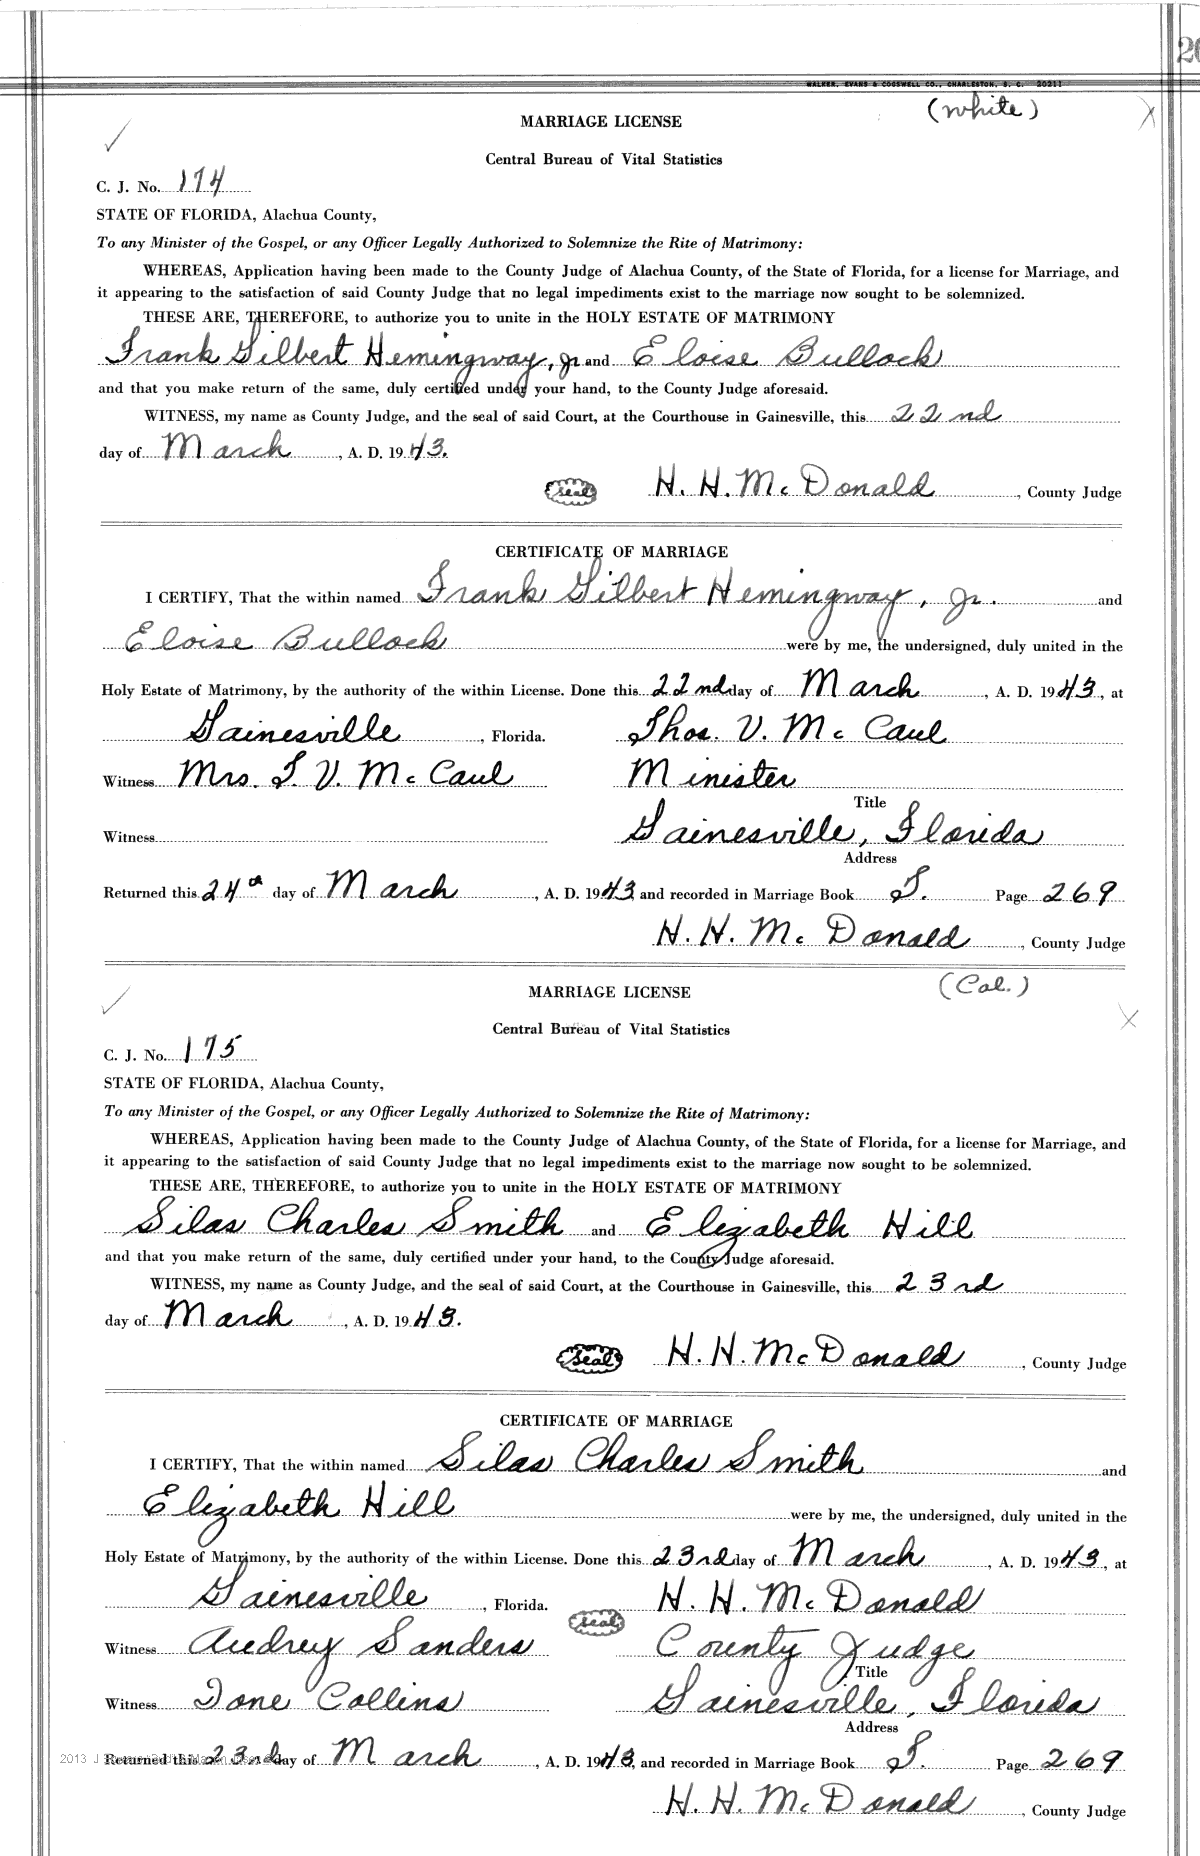 20
WALKER, EVANS & COGSWELL CO., CHARLESTON, S. C. 20211
(White)
MARRIAGE LICENSE
Central Bureau of Vital Statistics
C. J. No. 174
STATE OF FLORIDA, Alachua County,
To any Minister of the Gospel, or any Officer Legally Authorized to Solemnize the Rite of Matrimony:
WHEREAS, Application having been made to the County Judge of Alachua County, of the State of Florida, for a license for Marriage, and
it appearing to the satisfaction of said County Judge that no legal impediments exist to the marriage now sought to be solemnized.
THESE ARE, THEREFORE, to authorize you to unite in the HOLY ESTATE OF MATRIMONY
Frank Gilbert Hemingway, Jr. and Eloise Bullock
and that you make return of the same, duly certified under your hand, to the County Judge aforesaid.
WITNESS, my name as County Judge, and the seal of said Court, at the Courthouse in Gainesville, this 22nd
day of March, A. D. 1943.
(seal) H. H. McDonald, County Judge
CERTIFICATE OF MARRIAGE
I CERTIFY, That the within named Frank Gilbert Hemingway, Jr. and
Eloise Bullock were by me, the undersigned, duly united in the
Holy Estate of Matrimony, by the authority of the within License. Done this 22nd day of March, A. D. 1943, at
Gainesville, Florida. Thos. V. McCaul
Witness Mrs. T. V. McCaul Minister
Title
Witness Gainesville, Florida
Address
Returned this 24th day of March, A. D. 1943, and recorded in Marriage Book S. Page 269
H. H. McDonald, County Judge
(Col.)
MARRIAGE LICENSE
Central Bureau of Vital Statistics
C. J. No. 175
STATE OF FLORIDA, Alachua County,
To any Minister of the Gospel, or any Officer Legally Authorized to Solemnize the Rite of Matrimony:
WHEREAS, Application having been made to the County Judge of Alachua County, of the State of Florida, for a license for Marriage, and
it appearing to the satisfaction of said County Judge that no legal impediments exist to the marriage now sought to be solemnized.
THESE ARE, THEREFORE, to authorize you to unite in the HOLY ESTATE OF MATRIMONY
Silas Charles Smith and Elizabeth Hill
and that you make return of the same, duly certified under your hand, to the County Judge aforesaid.
WITNESS, my name as County Judge, and the seal of said Court, at the Courthouse in Gainesville, this 23rd
day of March, A. D. 1943.
(seal) H. H. McDonald, County Judge
CERTIFICATE OF MARRIAGE
I CERTIFY, That the within named Silas Charles Smith and
Elizabeth Hill were by me, the undersigned, duly united in the
Holy Estate of Matrimony, by the authority of the within License. Done this 23rd day of March, A. D. 1943, at
Gainesville, Florida. (seal) H. H. McDonald
Witness Audrey Sanders County Judge
Title
Witness Ione Collins Gainesville, Florida
Address
2013 J
Returned this 23rd day of March, A. D. 1943, and recorded in Marriage Book S. Page 269
H. H. McDonald, County Judge